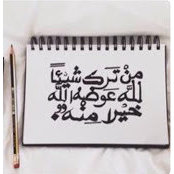 مِنْ تَرَكَ شَيْئًا
لِلَّهِ عَوَّضَهُ اللَّه
خَيْرًا مِنْهُ